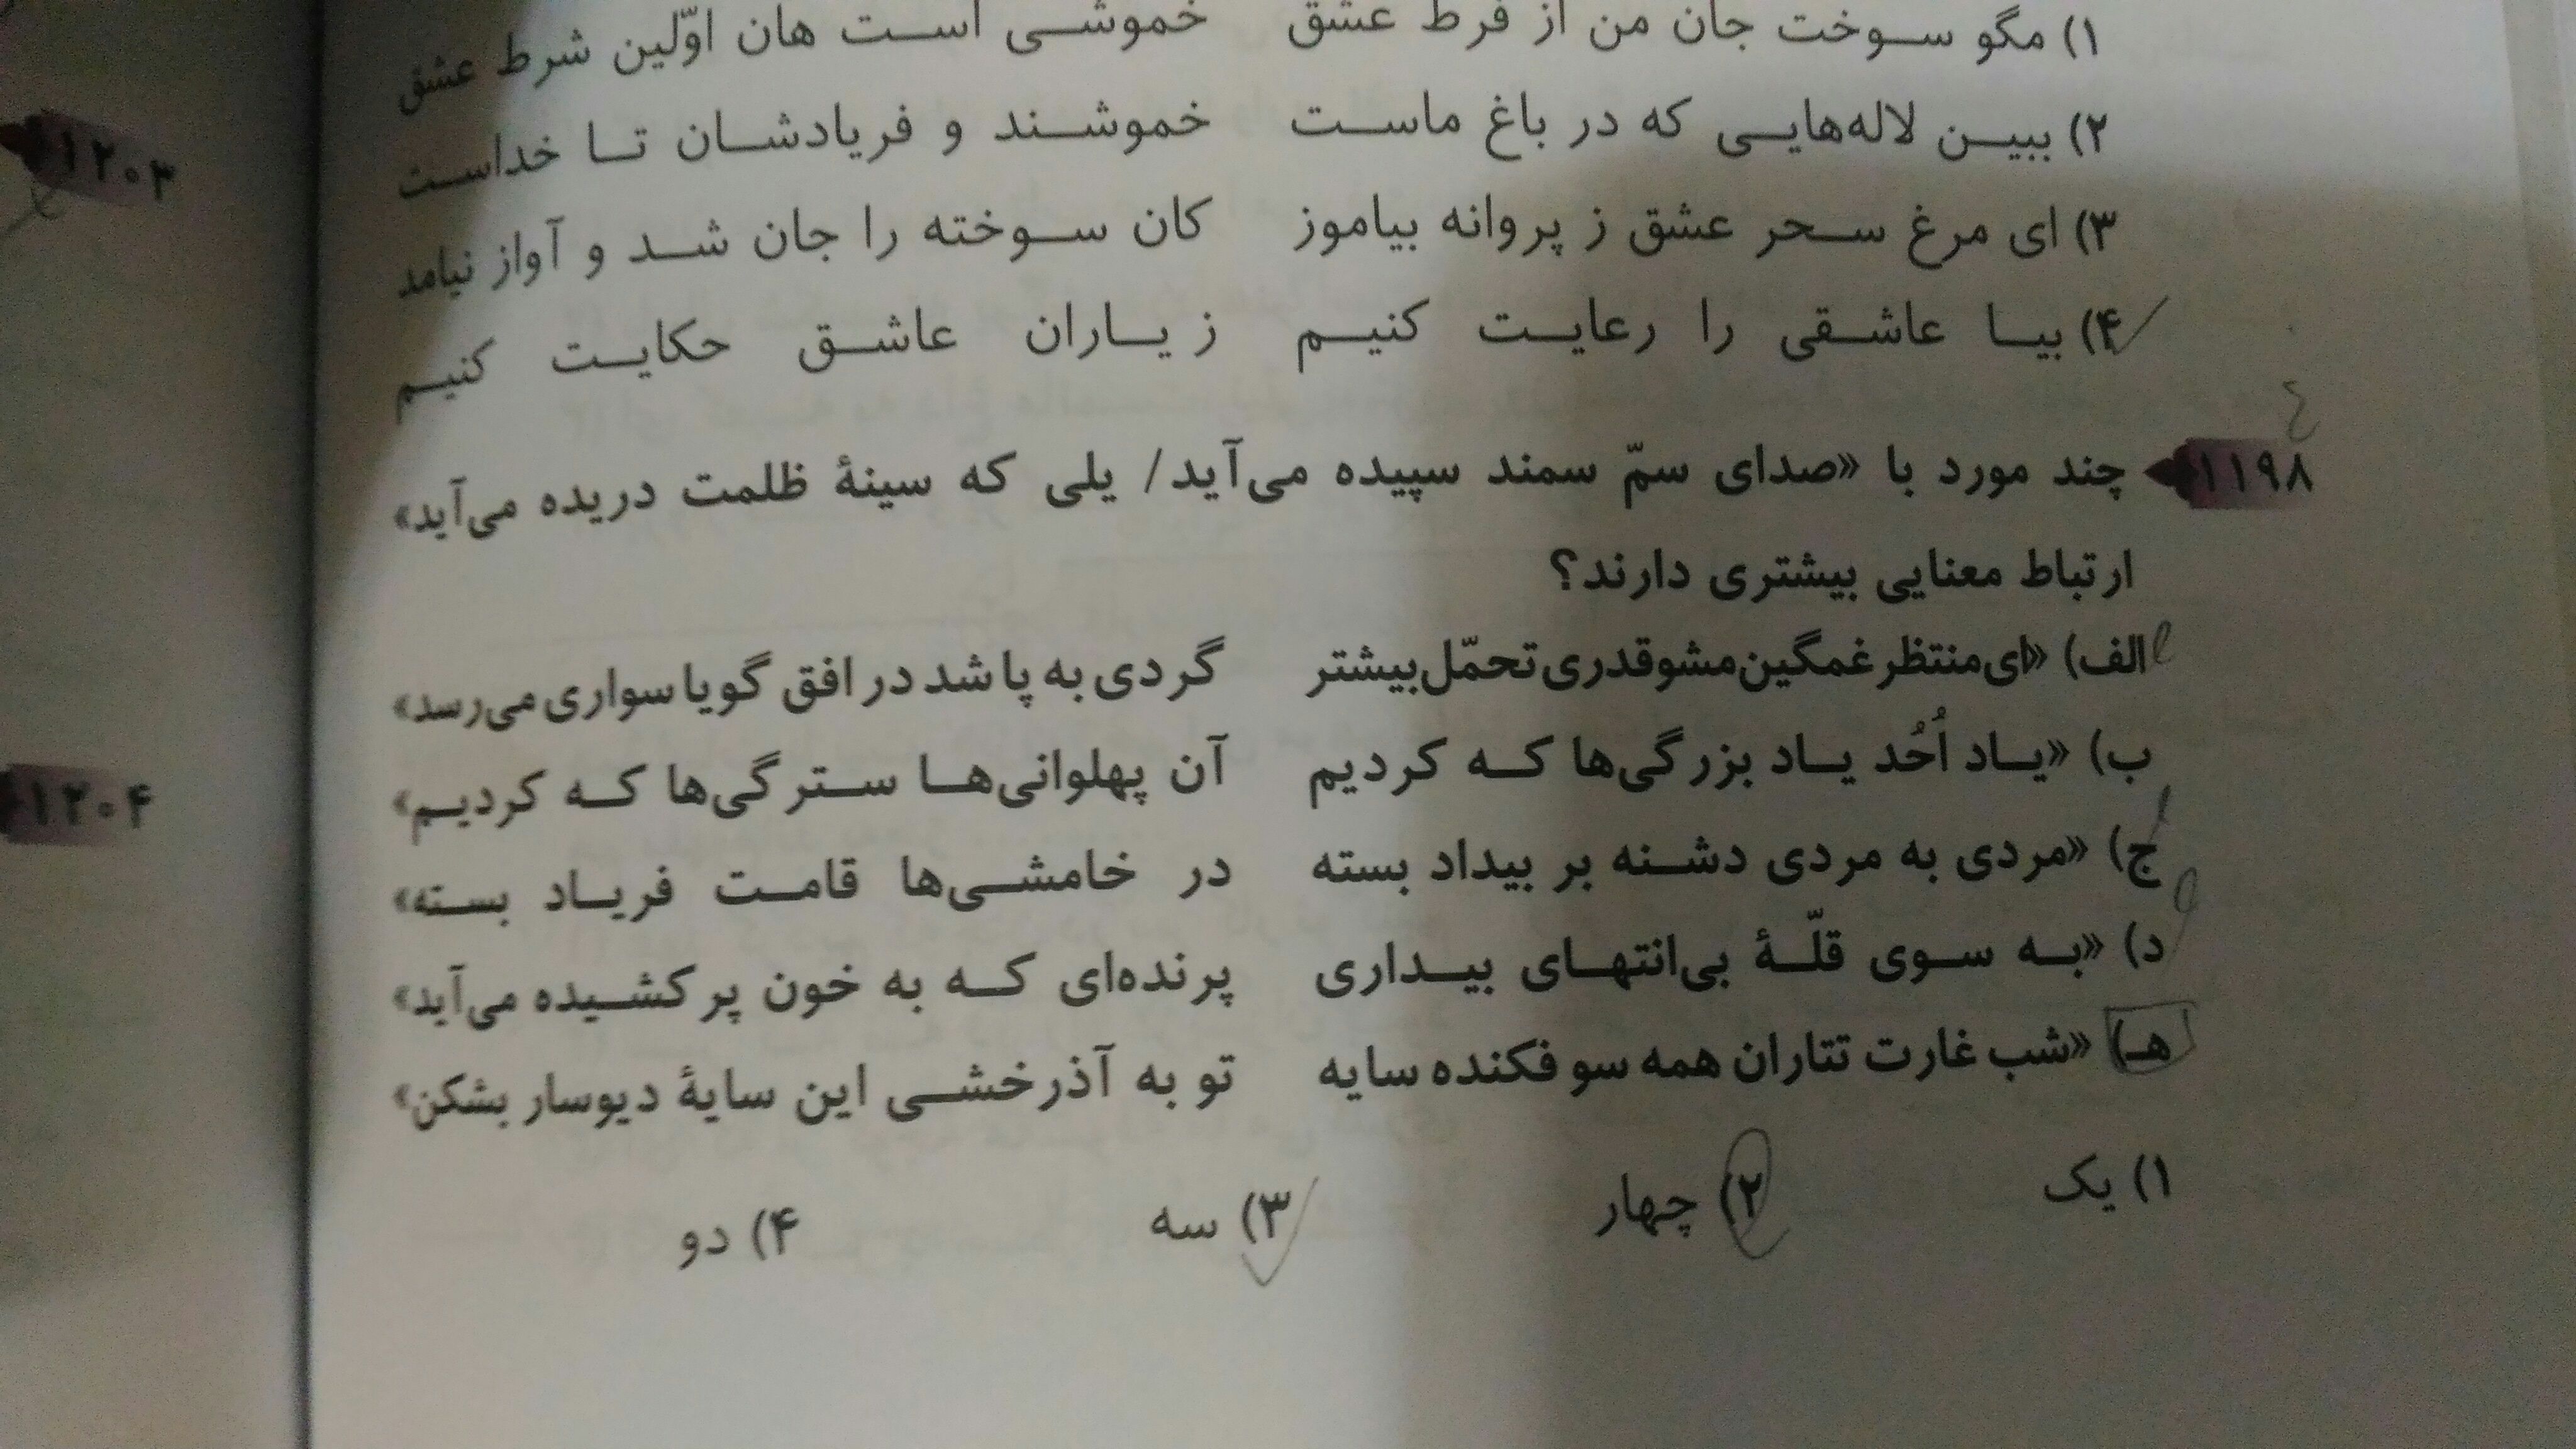 ۱) مگو سوخت جان من از فرط عشق خموشی است هان اوّلین شرط عشق
۲) ببین لاله‌هایی که در باغ ماست خموشند و فریادشان تا خداست
۳) ای مرغ سحر عشق ز پروانه بیاموز کان سوخته را جان شد و آواز نیامد
۴) بیا عاشقی را رعایت کنیم ز یاران عاشق حکایت کنیم
۴
۱۱۹۸ چند مورد با «صدای سمّ سمند سپیده می‌آید/ یلی که سینهٔ ظلمت دریده می‌آید»
ارتباط معنایی بیشتری دارند؟
الف) «ای منتظر غمگین مشو قدری تحمّل بیشتر گردی به پا شد در افق گویا سواری می‌رسد»
ب) «یاد اُحُد یاد بزرگی‌ها که کردیم آن پهلوانی‌ها سترگی‌ها که کردیم»
ج) «مردی به مردی دشنه بر بیداد بسته در خامشی‌ها قامت فریاد بسته»
د) «به سوی قلّهٔ بی‌انتهای بیداری پرنده‌ای که به خون پر کشیده می‌آید»
هـ) «شب غارت تتاران همه سو فکنده سایه تو به آذرخشی این سایهٔ دیوسار بشکن»
۱) یک ۲) چهار ۳) سه ۴) دو
۱۲۰۳
۱۲۰۴